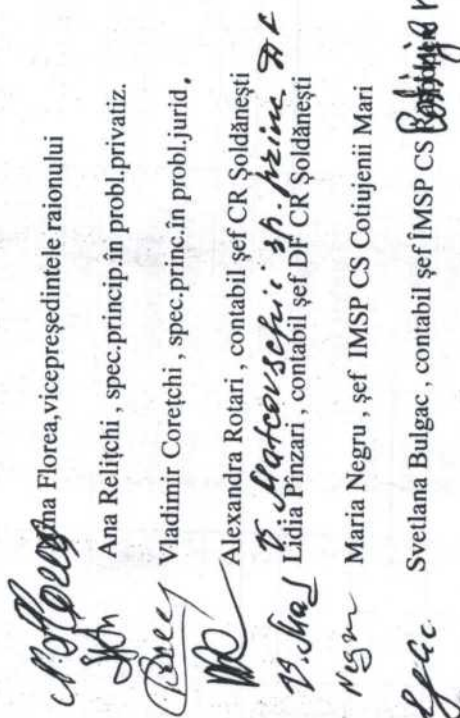 Florea,vicepreşedintele raionului
Ana Reliţchi , spec.princip.în probl.privatiz.
Vladimir Coreţchi , spec.princ.în probl.jurid.
Alexandra Rotari , contabil şef CR Şoldăneşti
V. Matcovschic sp. princ DF
Lidia Pînzari , contabil şef DF CR Şoldăneşti
Maria Negru , şef IMSP CS Cotiujenii Mari
Svetlana Bulgac , contabil şef IMSP CS